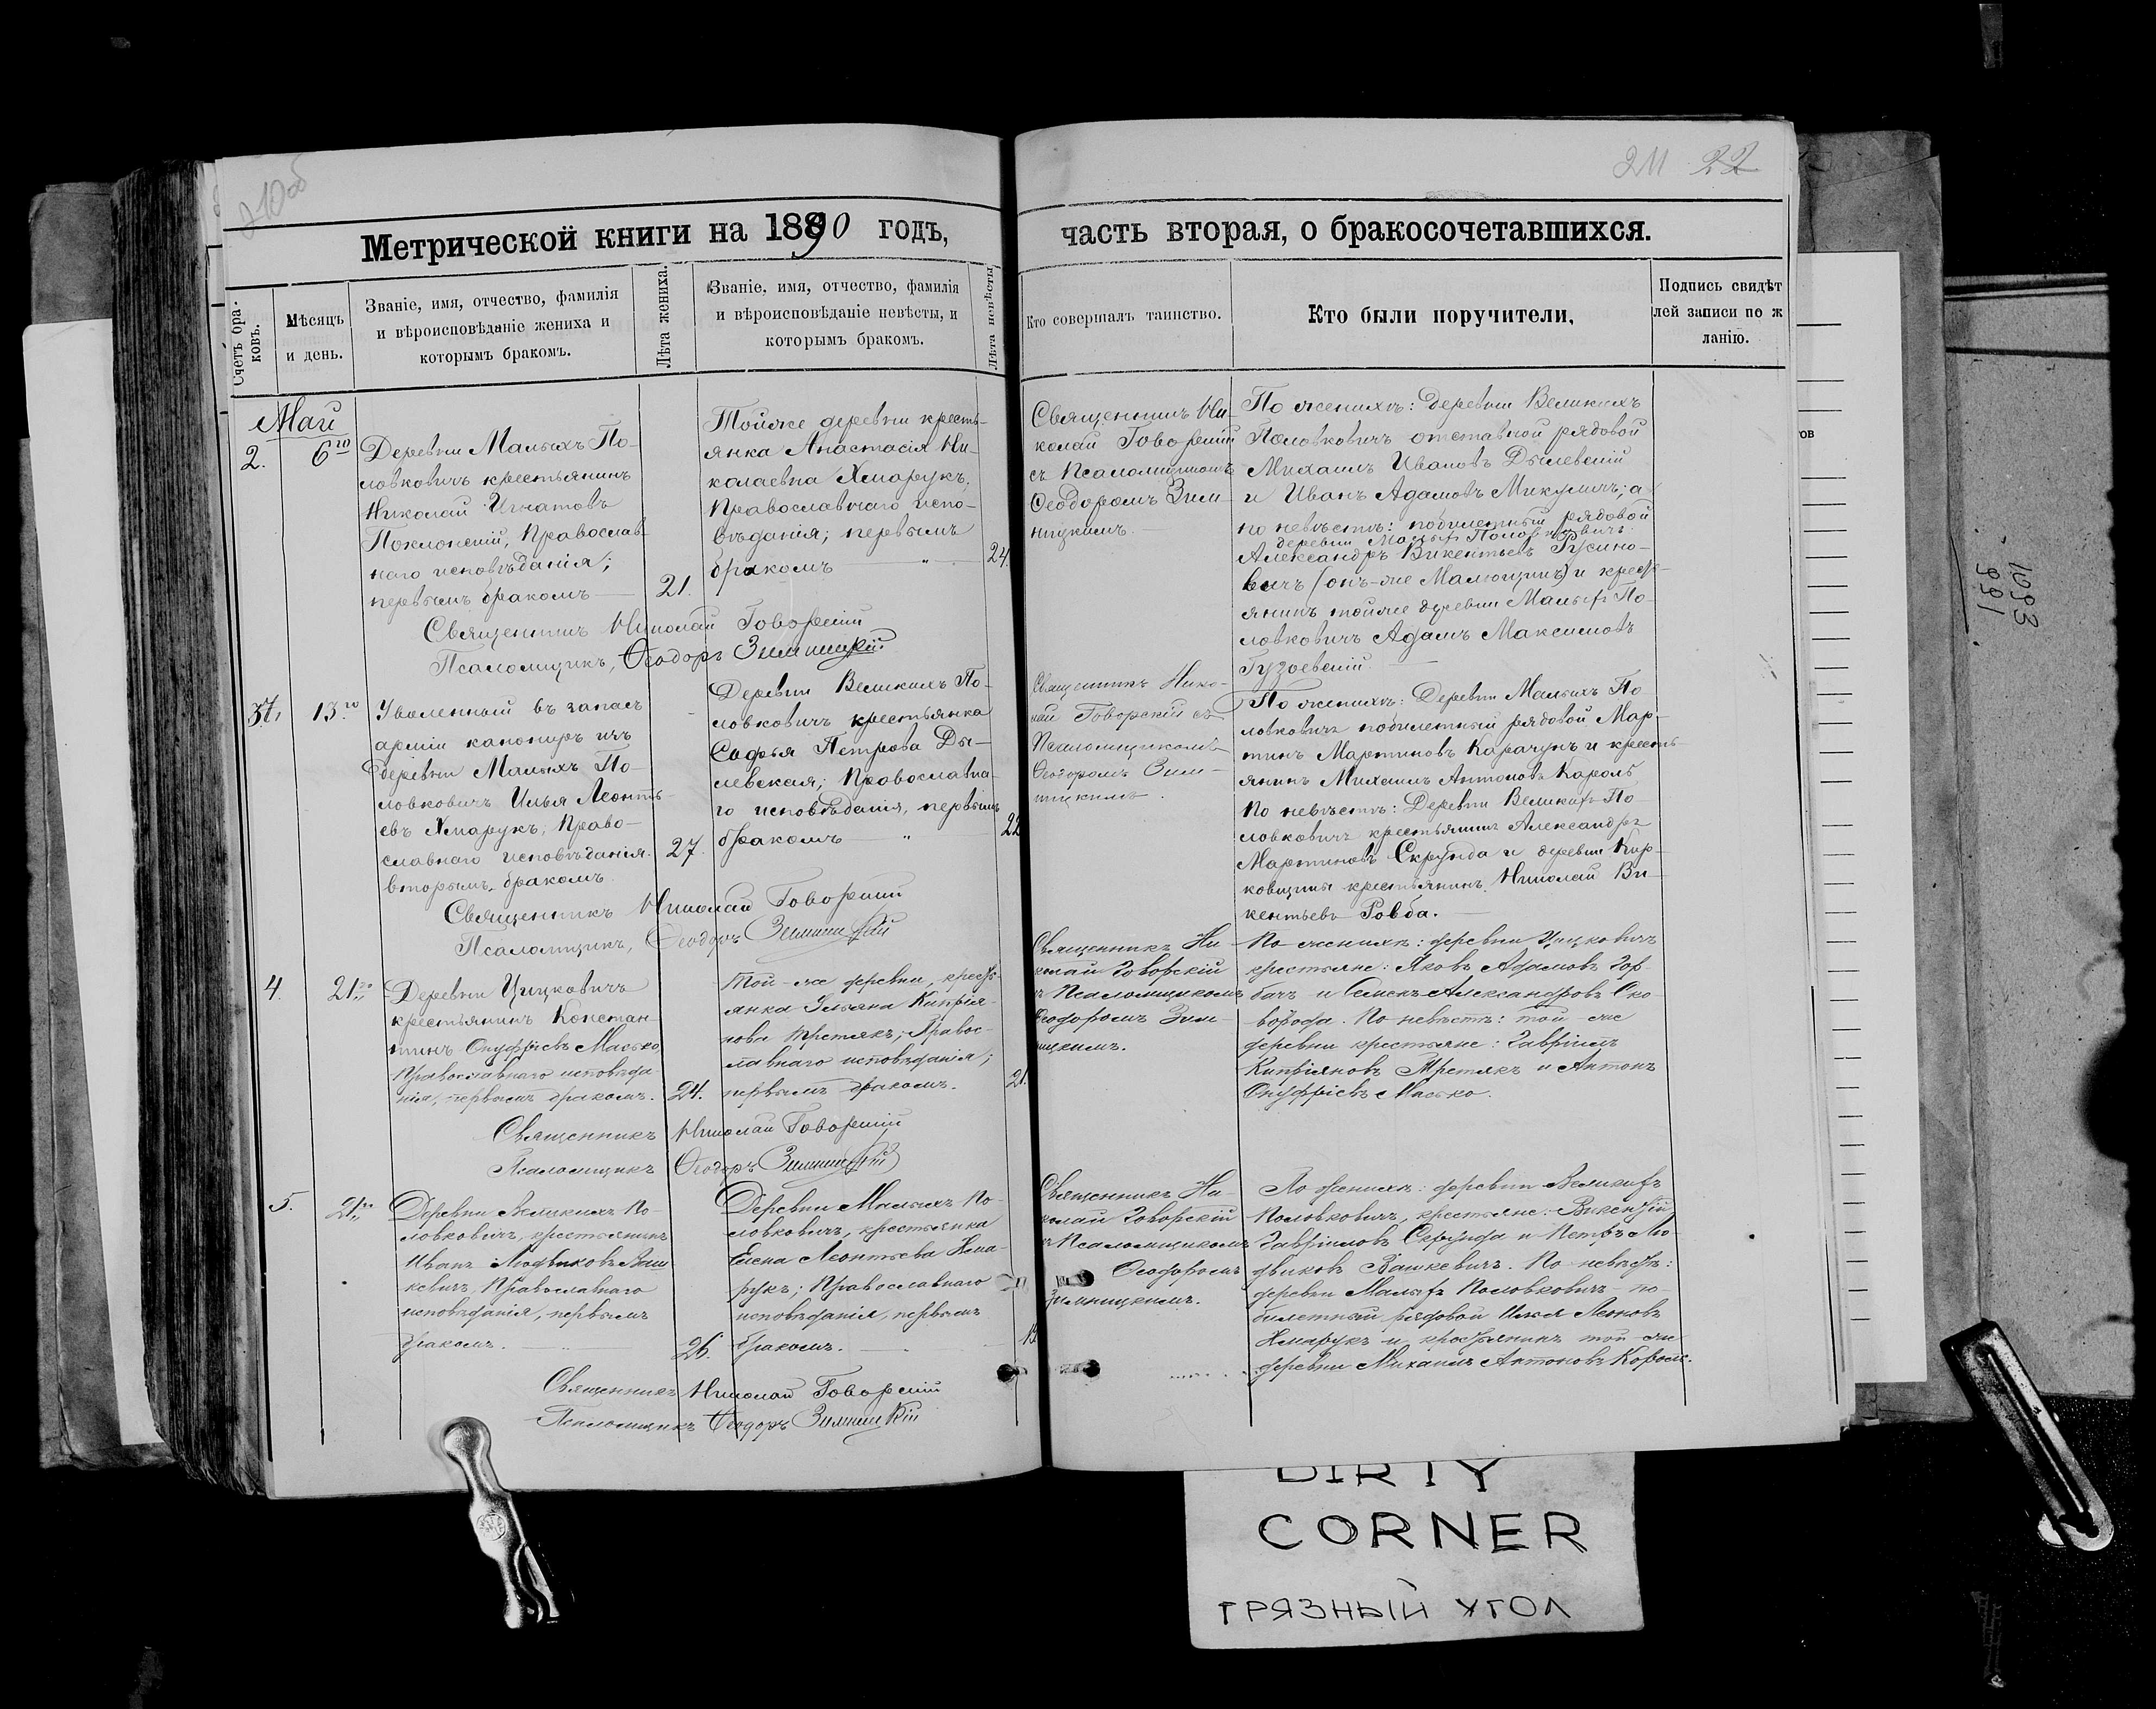 210об
211 22
Метрической книги на 1890 годъ,
часть вторая, о бракосочетавшихся.
Счетъ браковъ.
Мѣсяцъ и день.
Званіе, имя, отчество, фамилія
и вѣроисповѣданіе жениха и
которымъ бракомъ.
Лѣта жениха.
Званіе, имя, отчество, фамилія
и вѣроисповѣданіе невѣсты, и
которымъ бракомъ.
Лѣта невѣсты
Кто совершалъ таинство.
Кто были поручители,
Подпись свидѣт
лей записи по ж
ланію.
Май
2.
6го
Деревни Малыхъ По-
ловковичъ крестьянинъ
Николай Игнатовъ
Православ-
наго исповѣданія;
первымъ бракомъ
21.
Тойже деревни кресть-
янка Анастасія Ни-
колаевна Хмарукъ,
Православнаго испо-
вѣданія; первымъ
бракомъ "
24.
Священникъ Ни-
колай Говорскій
съ Псаломщикомъ
Ѳеодоромъ Зим-
ницкимъ.
По женихѣ: деревни Великихъ
Половковичъ отставной рядовой
Михаилъ Ивановъ Дылевскій
и Иванъ Адамовъ Микуличъ; а
по невѣстѣ: побилетный рядовой
деревни Малыхъ Половковичъ
Александръ Викентьевъ Русино-
вичъ (онъ-же Малющицъ) и кресть-
янинъ тойже деревни Малыхъ По-
ловковичъ Адамъ Максимовъ
Священникъ Николай Говорскій
Псаломщикъ, Ѳеодоръ Зимницкій
3.
13го
Уволенный въ запасъ
арміи канониръ изъ
деревни Малыхъ По-
ловковичъ Илья Леонть-
евъ Хмарукъ, Право-
славнаго исповѣданія.
вторымъ бракомъ
27.
Деревни Великихъ По-
ловковичъ крестьянка
Софья Петрова Ды-
левская; Православна-
го исповѣданія, первымъ
бракомъ "
22
Священникъ Нико-
лай Говорскій съ
Псаломщикомъ
Ѳеодоромъ Зим-
ницкимъ.
По женихѣ: Деревни Малыхъ По
ловковичъ побилетный рядовой Мар-
тинъ Мартиновъ Карачунъ и кресть-
янинъ Михаилъ Антоновъ Король
По невѣстѣ: Деревни Великихъ По
ловковичъ крестьянинъ Александръ
Мартиновъ Скрунда и деревни Кир-
ковщины крестьянинъ Николай Ви-
кентьевъ Ровба.
Священникъ Николай Говорскій
Псаломщикъ, Ѳеодоръ Зимницкій
4.
21го
Деревни Цицковичъ
крестьянинъ Констан-
тинъ Онуфріевъ Масько
Православнаго исповѣда
нія, первымъ бракомъ.
24.
Той-же деревни, кресть
янка Ульяна Кипрія-
нова Третякъ; Правос-
лавнаго исповѣданія;
первымъ бракомъ.
21.
Священникъ Ни-
колай Говорскій
съ Псаломщикомъ
Ѳеодоромъ Зим-
ницкимъ.
По женихѣ: деревни Цицковичъ
крестьяне: Яковъ Адамовъ Гор-
бачъ и Семенъ Александровъ Ско-
ворода. По невѣстѣ: той-же
деревни крестьяне: Гавріилъ
Кипріяновъ Третякъ и Антонъ
Онуфріевъ Масько.
Священникъ Николай Говорскій
Псаломщикъ Ѳеодоръ Зимницкій
5.
21го
Деревни Великихъ По-
ловковичъ, крестьянинъ
Иванъ Людвиковъ Заш
кевичъ, Православнаго
исповѣданія, первымъ
бракомъ.
26.
Деревни Малыхъ По-
ловковичъ, крестьянка
Елена Леонтьева Хма-
рукъ; Православнаго
исповѣданія, первымъ
бракомъ.
Священникъ Ни-
колай Говорскій
съ Псаломщикомъ
Ѳеодоромъ
Зимницкимъ.
По женихѣ: деревни Великихъ
Половковичъ, крестьяне: Викентій
Гавріиловъ Скрунда и Петръ Лю-
двиковъ Зашкевичъ. По невѣстѣ:
деревни Малыхъ Половковичъ по-
билетный рядовой Илья Леоновъ
Хмарукъ и крестьянинъ той-же
деревни Михаилъ Антоновъ Король.
Священникъ Николай Говорскій
Псаломщикъ Ѳеодоръ Зимницкій
1093
991
DIRTY
CORNER
ГРЯЗНЫЙ УГОЛ